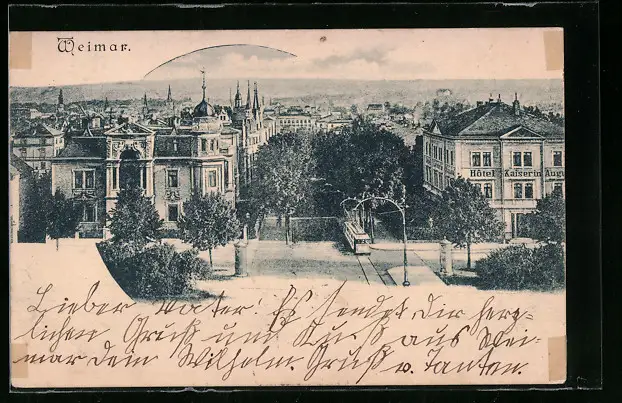 Weimar.
Hôtel Kaiserin Augu
Lieber Vater! Es sendet Dir herz-
lichen Gruß und Kuß aus Wei-
mar Dein Wilhelm. Gruß v. Tanten.